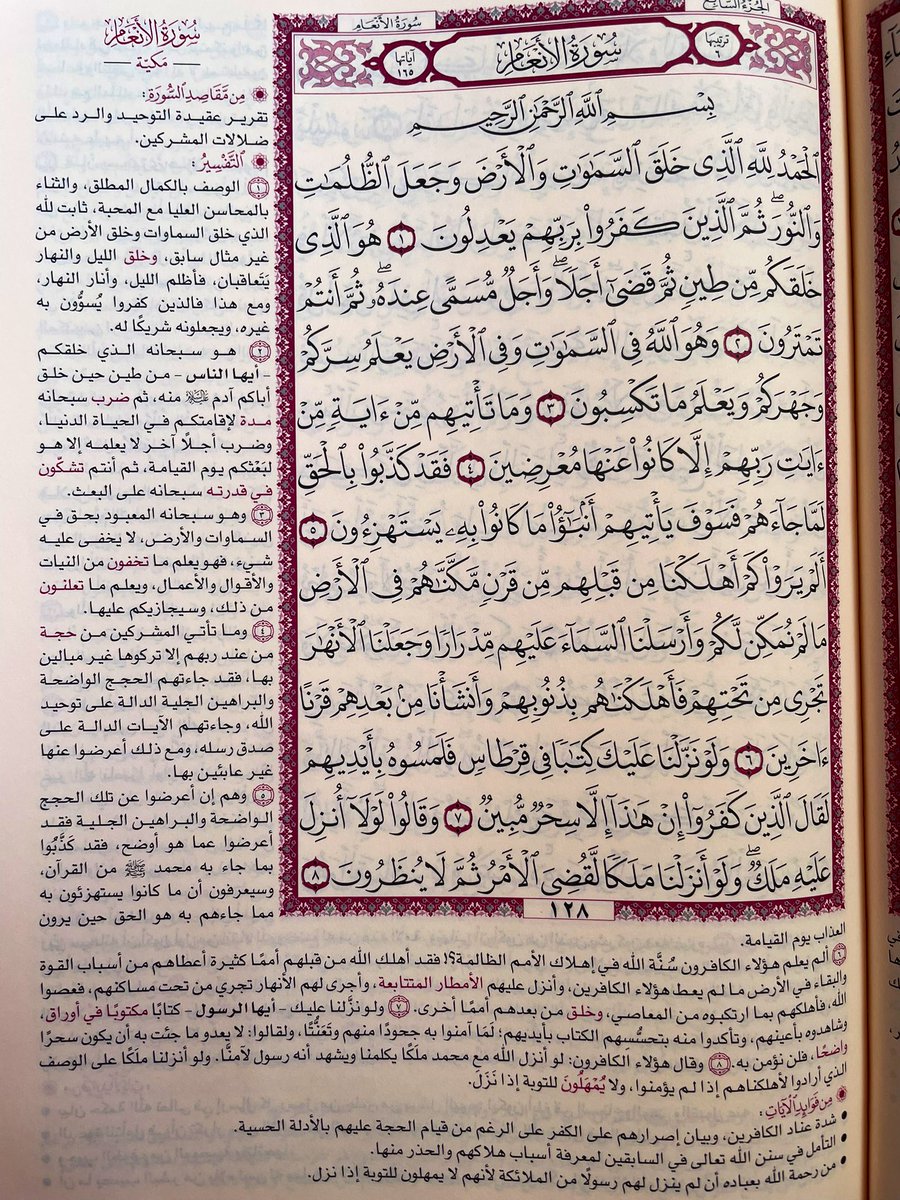 الجزء السابع
سورة الأنعام
ترتيبها
٦
سُورَةُ الأَنْعَامِ
آياتها
١٦٥
بِسْمِ ٱللَّهِ ٱلرَّحْمَٰنِ ٱلرَّحِيمِ
ٱلْحَمْدُ لِلَّهِ ٱلَّذِى خَلَقَ ٱلسَّمَٰوَٰتِ وَٱلْأَرْضَ وَجَعَلَ ٱلظُّلُمَٰتِ
وَٱلنُّورَ ۖ ثُمَّ ٱلَّذِينَ كَفَرُوا۟ بِرَبِّهِمْ يَعْدِلُونَ ١ هُوَ ٱلَّذِى
خَلَقَكُم مِّن طِينٍ ثُمَّ قَضَىٰٓ أَجَلًا ۖ وَأَجَلٌ مُّسَمًّى عِندَهُۥ ۖ ثُمَّ أَنتُمْ
تَمْتَرُونَ ٢ وَهُوَ ٱللَّهُ فِى ٱلسَّمَٰوَٰتِ وَفِى ٱلْأَرْضِ يَعْلَمُ سِرَّكُمْ
وَجَهْرَكُمْ وَيَعْلَمُ مَا تَكْسِبُونَ ٣ وَمَا تَأْتِيهِم مِّنْ ءَايَةٍ مِّنْ
ءَايَٰتِ رَبِّهِمْ إِلَّا كَانُوا۟ عَنْهَا مُعْرِضِينَ ٤ فَقَدْ كَذَّبُوا۟ بِٱلْحَقِّ
لَمَّا جَآءَهُمْ فَسَوْفَ يَأْتِيهِمْ أَنۢبَٰٓؤُا۟ مَا كَانُوا۟ بِهِۦ يَسْتَهْزِءُونَ ٥
أَلَمْ يَرَوْا۟ كَمْ أَهْلَكْنَا مِن قَبْلِهِم مِّن قَرْنٍ مَّكَّنَّٰهُمْ فِى ٱلْأَرْضِ
مَا لَمْ نُمَكِّن لَّكُمْ وَأَرْسَلْنَا ٱلسَّمَآءَ عَلَيْهِم مِّدْرَارًا وَجَعَلْنَا ٱلْأَنْهَٰرَ
تَجْرِى مِن تَحْتِهِمْ فَأَهْلَكْنَٰهُم بِذُنُوبِهِمْ وَأَنشَأْنَا مِنۢ بَعْدِهِمْ قَرْنًا
ءَاخَرِينَ ٦ وَلَوْ نَزَّلْنَا عَلَيْكَ كِتَٰبًا فِى قِرْطَاسٍ فَلَمَسُوهُ بِأَيْدِيهِمْ
لَقَالَ ٱلَّذِينَ كَفَرُوٓا۟ إِنْ هَٰذَآ إِلَّا سِحْرٌ مُّبِينٌ ٧ وَقَالُوا۟ لَوْلَآ أُنزِلَ
عَلَيْهِ مَلَكٌ ۖ وَلَوْ أَنزَلْنَا مَلَكًا لَّقُضِىَ ٱلْأَمْرُ ثُمَّ لَا يُنظَرُونَ ٨
١٢٨
سُورَةُ الأَنْعَامِ
مَكيّة
مِن مَّقَاصِدِ السُّورَةِ:
تقرير عقيدة التوحيد والرد على
ضلالات المشركين.
التَّفْسِيرُ:
١ الوصف بالكمال المطلق، والثناء
بالمحاسن العليا مع المحبة، ثابت لله
الذي خلق السماوات وخلق الأرض من
غير مثال سابق، وخلق الليل والنهار
يَتَعاقبان، فأظلم الليل، وأنار النهار،
ومع هذا فالذين كفروا يُسوُّون به
غيره، ويجعلونه شريكًا له.
٢ هو سبحانه الذي خلقكم
- أيها الناس - من طين حين خلق
أباكم آدم ﷺ منه، ثم ضرب سبحانه
مدة لإقامتكم في الحياة الدنيا،
وضرب أجلًا آخر لا يعلمه إلا هو
لبَعْثكم يوم القيامة، ثم أنتم تشكّون
في قدرته سبحانه على البعث.
٣ وهو سبحانه المعبود بحق في
السماوات والأرض، لا يخفى عليه
شيء، فهو يعلم ما تخفون من النيات
والأقوال والأعمال، ويعلم ما تعلنون
من ذلك، وسيجازيكم عليها.
٤ وما تأتي المشركين من حجة
من عند ربهم إلا تركوها غير مبالين
بها، فقد جاءتهم الحجج الواضحة
والبراهين الجلية الدالة على توحيد
الله، وجاءتهم الآيات الدالة على
صدق رسله، ومع ذلك أعرضوا عنها
غير عابئين بها.
٥ وهم إن أعرضوا عن تلك الحجج
الواضحة والبراهين الجلية فقد
أعرضوا عما هو أوضح، فقد كَذَّبُوا
بما جاء به محمد ﷺ من القرآن،
وسيعرفون أن ما كانوا يستهزئون به
مما جاءهم به هو الحق حين يرون
العذاب يوم القيامة.
٦ ألم يعلم هؤلاء الكافرون سُنَّة الله في إهلاك الأمم الظالمة؟! فقد أهلك الله من قبلهم أممًا كثيرة أعطاهم من أسباب القوة
والبقاء في الأرض ما لم يعط هؤلاء الكافرين، وأنزل عليهم الأمطار المتتابعة، وأجرى لهم الأنهار تجري من تحت مساكنهم، فعصوا
الله، فأهلكهم بما ارتكبوه من المعاصي، وخلق من بعدهم أممًا أخرى. ٧ ولو نزَّلنا عليك - أيها الرسول - كتابًا مكتوبًا في أوراق،
وشاهدوه بأعينهم، وتأكدوا منه بتحسُّسِهم الكتاب بأيديهم؛ لمَا آمنوا به جحودًا منهم وتَعَنُّتًا، ولقالوا: لا يعدو ما جئت به أن يكون سحرًا
واضحًا، فلن نؤمن به. ٨ وقال هؤلاء الكافرون: لو أنزل الله مع محمد ملَكًا يكلمنا ويشهد أنه رسول لآمنَّا. ولو أنزلنا ملَكًا على الوصف
الذي أرادوا لأهلكناهم إذا لم يؤمنوا، ولا يُمْهَلُونَ للتوبة إذا نَزَلَ.
مِن فَوَائِدِ الآيَاتِ:
• شدة عناد الكافرين، وبيان إصرارهم على الكفر على الرغم من قيام الحجة عليهم بالأدلة الحسية.
• التأمل في سنن الله تعالى في السابقين لمعرفة أسباب هلاكهم والحذر منها.
• من رحمة الله بعباده أن لم ينزل لهم رسولًا من الملائكة لأنهم لا يمهلون للتوبة إذا نزل.